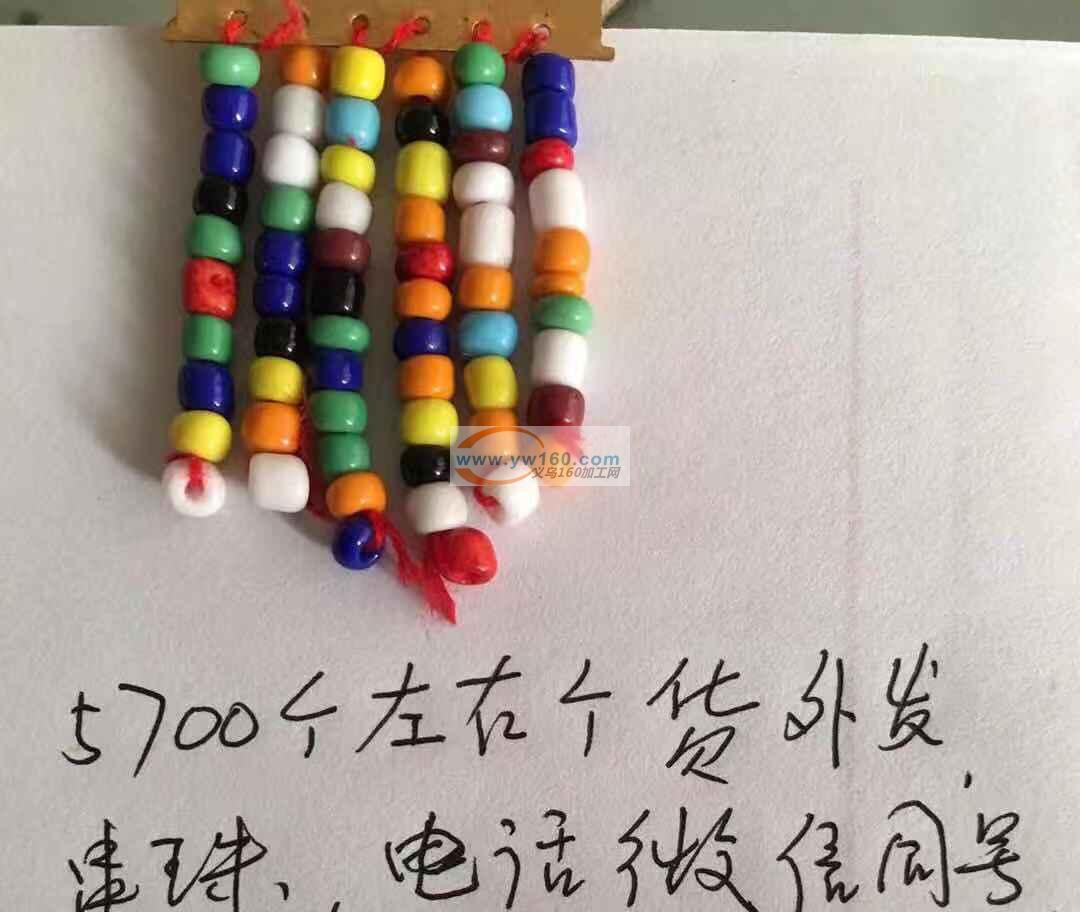 www.yw160.com
义乌160加工网
5700个左右个货外发.
串珠、电话微信同号